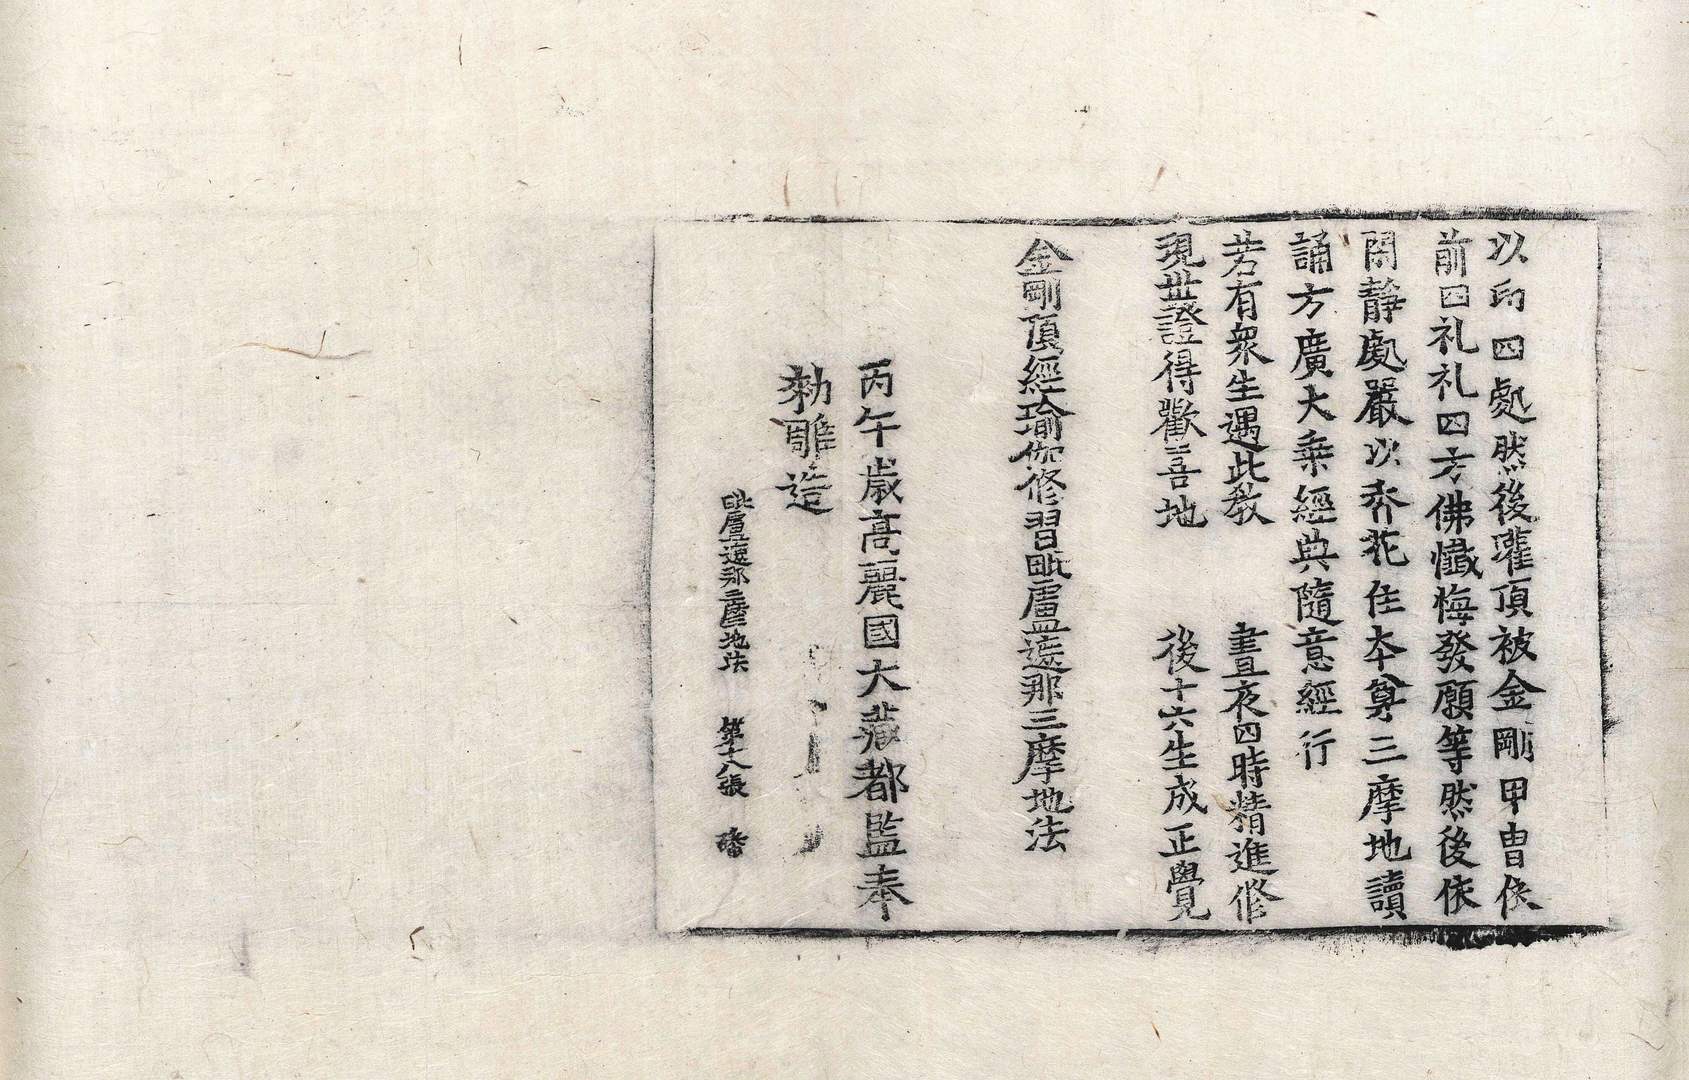 以印四處然後灌頂被金剛甲冑依
前四礼礼四方佛懺悔發願等然後依
閑靜處嚴以香花住本尊三摩地讀
誦方廣大乘經典隨意經行
若有衆生遇此教　晝夜四時精進修
現世證得歡喜地　後十六生成正覺
金剛頂經瑜伽修習毗盧遮那三摩地法
丙午歲高麗國大藏都監奉
勑雕造
毗盧遮那三摩地法　第十八張　磻